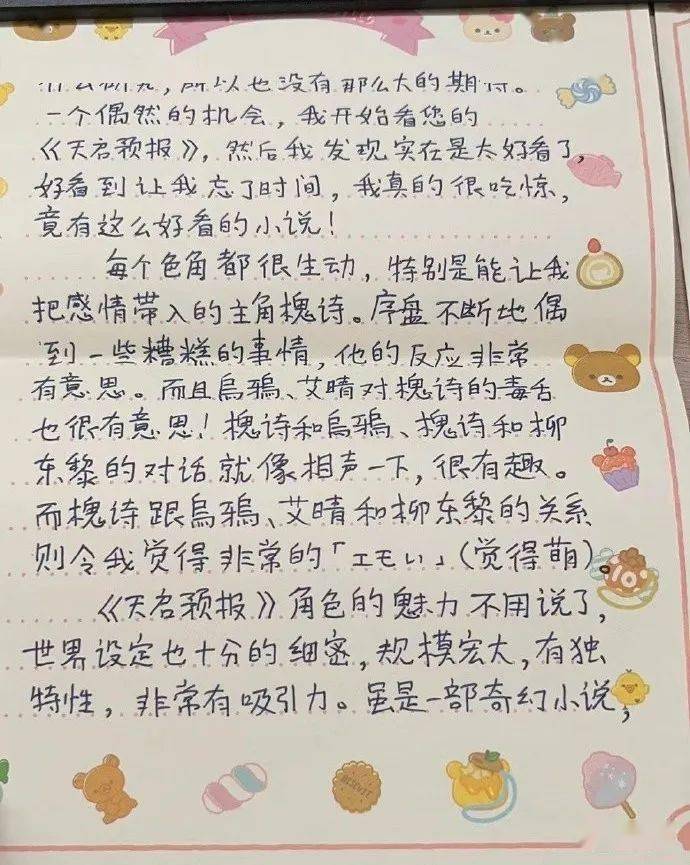 所以也没有那么大的期待。
一个偶然的机会，我开始看您的
《天启预报》，然后我发现实在是太好看了，
好看到让我忘了时间，我真的很吃惊，
竟有这么好看的小说！
每个色角都很生动，特别是能让我
把感情带入的主角槐诗。序盘不断地偶
到一些糟糕的事情，他的反应非常
有意思。而且烏鴉、艾晴对槐诗的毒舌
也很有意思！槐诗和烏鴉、槐诗和柳
东黎的对话就像相声一下，很有趣。
而槐诗跟烏鴉、艾晴和柳东黎的关系
则令我觉得非常的「エモい」（觉得萌）。
《天启预报》角色的魅力不用说了，
世界设定也十分的细密，规模宏大，有独
特性，非常有吸引力。虽是一部奇幻小说，